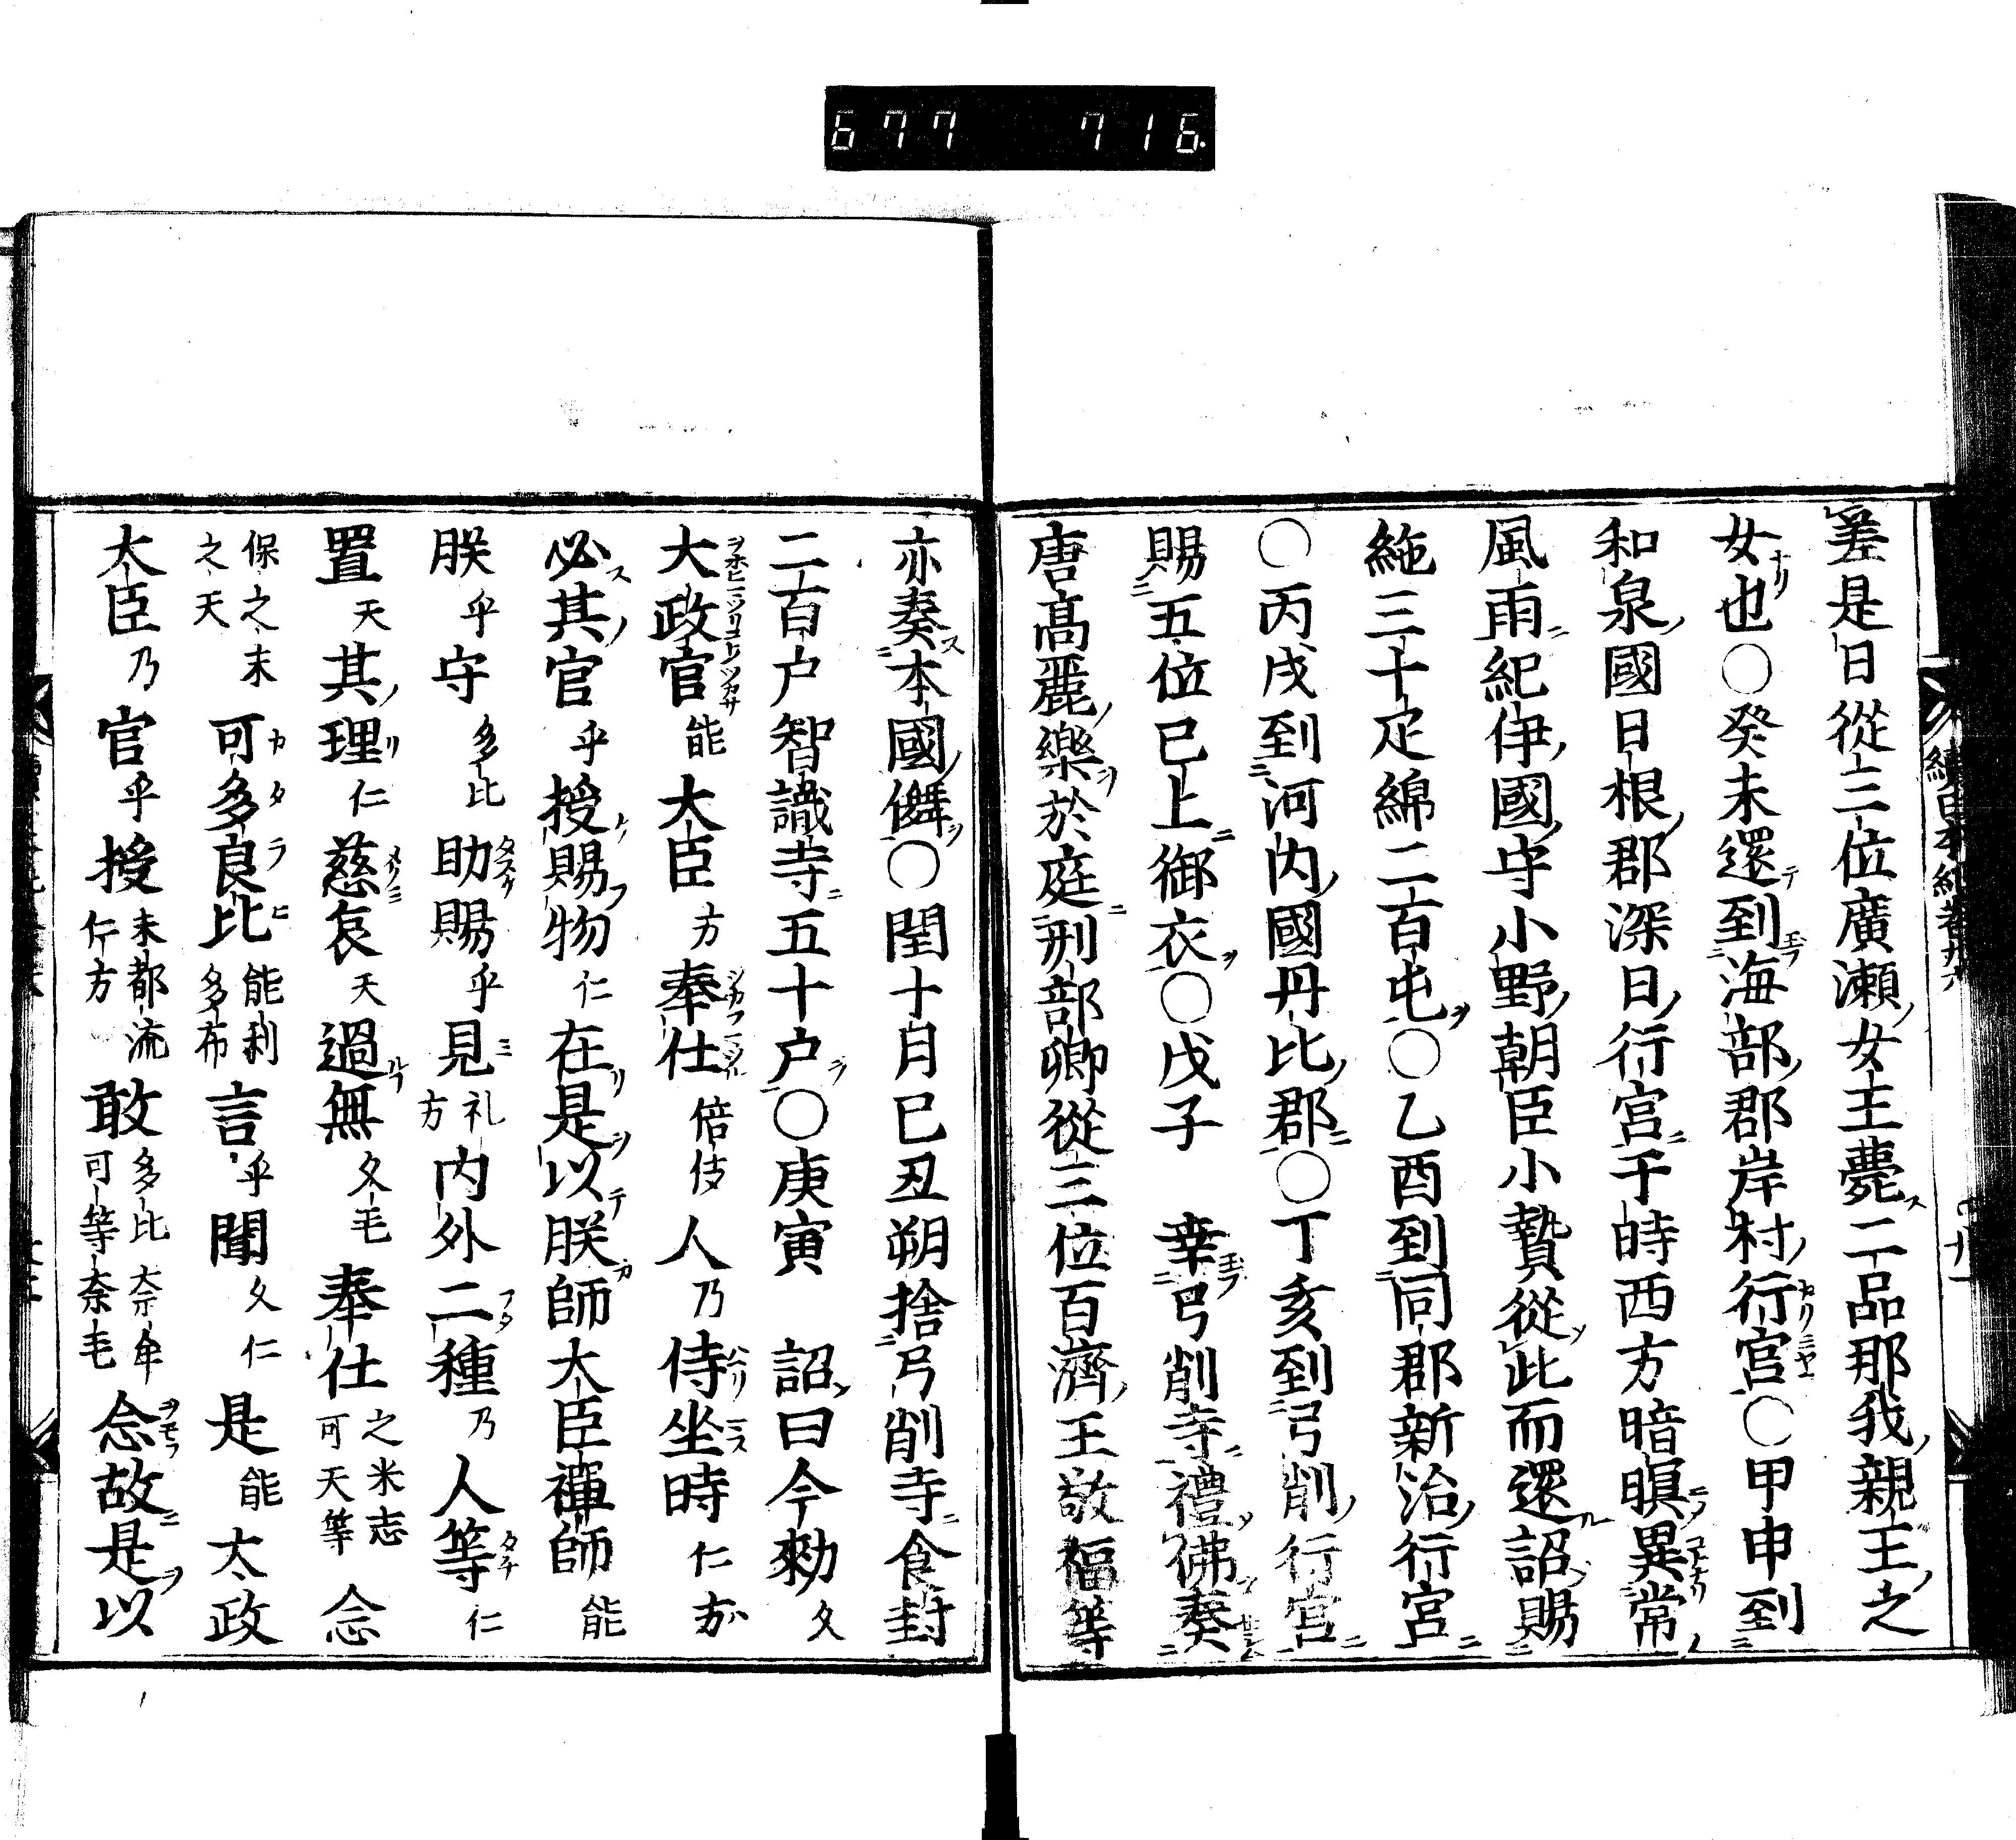 677 716.
差是日從三位廣瀬女王薨二品那我親王之
女也○癸未還到海部郡岸村行宮○甲申到
和泉國日根郡深日行宮于時西方暗暝異常
風雨紀伊國守小野朝臣小贄從此而還詔賜
絁三十疋綿二百屯○乙酉到同郡新治行宮
○丙戌到河内國丹比郡○丁亥到弓削行宮
賜五位已上御衣○戊子 幸弓削寺禮佛奏
唐髙麗樂於庭刑部卿從三位百濟王敬福等
亦奏本國儛○閏十月已丑朔捨弓削寺食封
二百戸智識寺五十戸○庚寅 詔曰今勑久
大政官能大臣方奉仕倍伎人乃侍坐時仁方
必其官乎授賜物仁在是以朕師大臣禪師能
朕乎守多比助賜乎見礼方内外二種乃人等仁
置天其理仁慈哀天過無久毛奉仕之米志可天等念
保之末之天可多良比能利多布言乎聞久仁是能太政
大臣乃官乎授末都流仁方敢多比奈牟可等奈毛念故是以